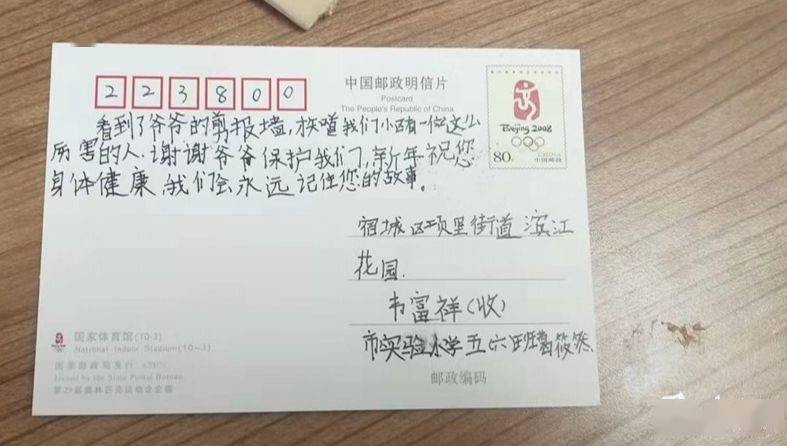 223800
中国邮政明信片
Postcard
The People's Republic of China
Beijing 2008
80分
CHINA
中国邮政
看到了爷爷的剪报墙,才知道我们小区有一位这么
厉害的人.谢谢爷爷保护我们,新年祝您
身体健康 我们会永远记住您的故事。
宿城区项里街道滨江
花园.
韦富祥(收)
市实验小学五六班葛筱然
邮政编码
国家体育馆(10-3)
National Indoor Stadium(10-3)
国家邮政局发行
Issued by the State Postal Bureau
第29届奥林匹克运动会会徽